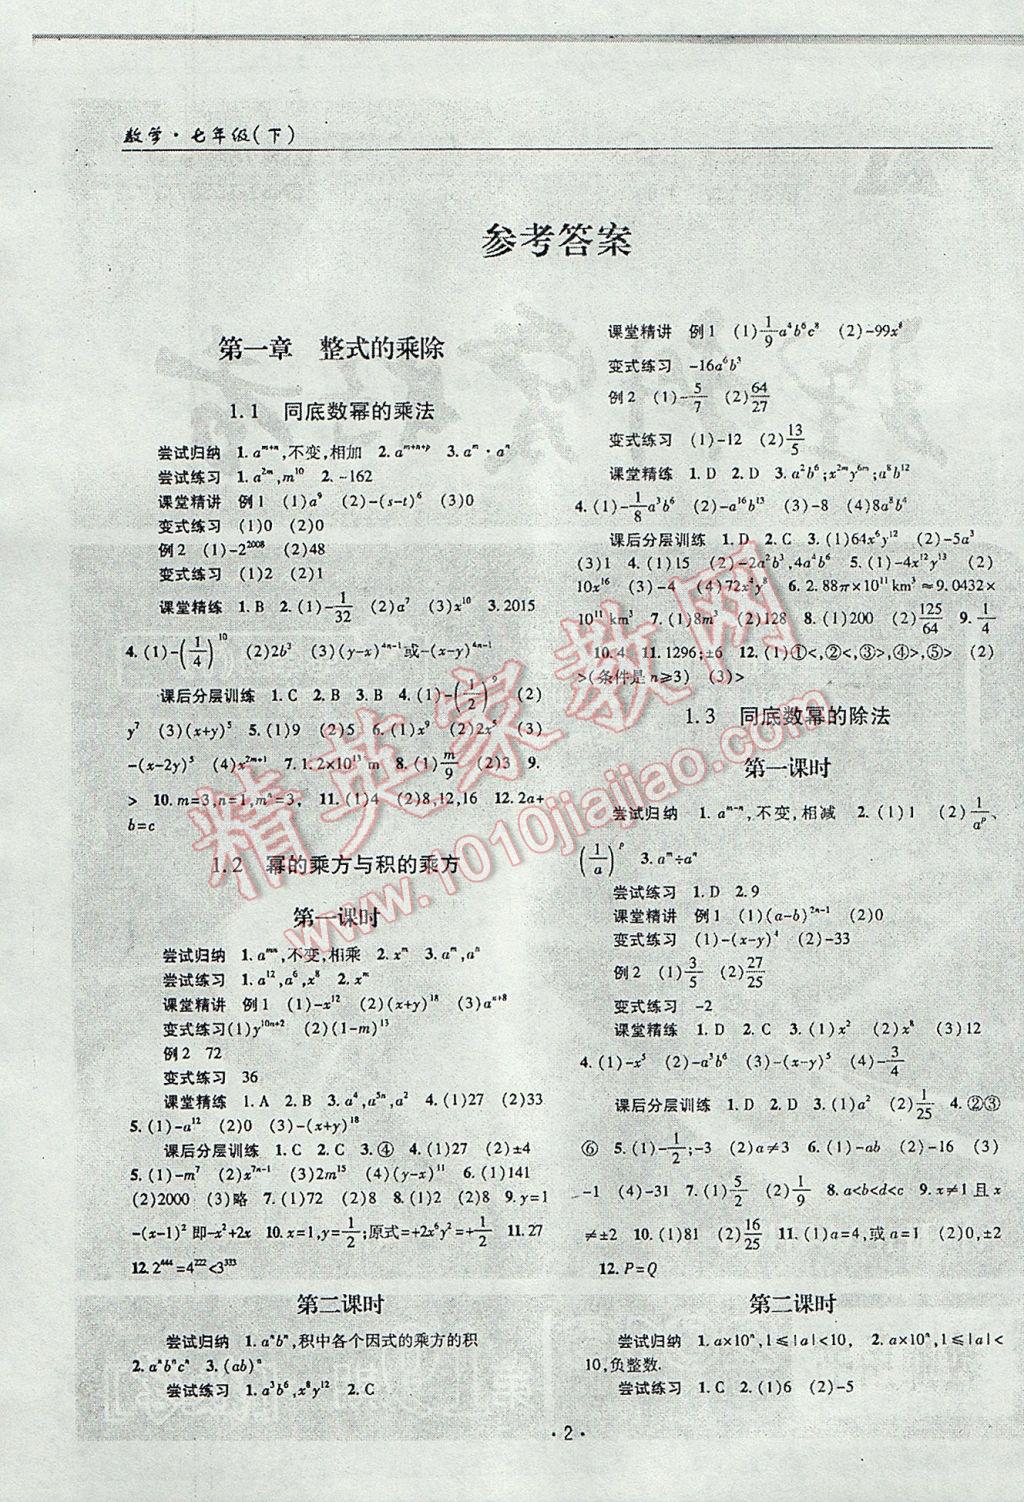 数学·七年级(下)
参考答案
第一章 整式的乘除
1.1 同底数幂的乘法
尝试归纳 1.a^{m+n},不变,相加 2.a^{m+n+p} 3.a^m·a^n
尝试练习 1.a^{2m},m^{10} 2.-162
课堂精讲 例1 (1)a^9 (2)-(s-t)^6 (3)0
变式练习 (1)0 (2)0
例2 (1)-2^{2008} (2)48
变式练习 (1)2 (2)1
课堂精练 1.B 2.(1)-1/32 (2)a^7 (3)x^{10} 3.2015
4.(1)-(1/4)^{10} (2)2b^3 (3)(y-x)^{4n-1}或-(x-y)^{4n-1}
课后分层训练 1.C 2.B 3.B 4.(1)-(1/2)^9 (2)
y^7 (3)(x+y)^5 5.(1)9 (2)5 6.(1)x^7 (2)2x^5 (3)
-(x-2y)^5 (4)x^{2m+1} 7.1.2×10^{13} m 8.(1)m/9 (2)3 9.
> 10.m=3,n=1,m^n=3, 11.(1)4 (2)8,12,16 12.2a+
b=c
1.2 幂的乘方与积的乘方
第一课时
尝试归纳 1.a^{mn},不变,相乘 2.x^m 3.a^m,a^n
尝试练习 1.a^{12},a^6,x^8 2.x^m
课堂精讲 例1 (1)-x^{12} (2)(x+y)^{18} (3)a^{n+8}
变式练习(1)y^{10n+2} (2)(1-m)^{13}
例2 72
变式练习 36
课堂精练 1.A 2.B 3.a^4,a^{5n},a^2 4.(1)27 (2)33
5.(1)-a^{12} (2)0 (3)-(x+y)^{18}
课后分层训练 1.C 2.C 3.④ 4.(1)27 (2)±4
5.(1)-m^7 (2)x^{7n-1} (3)2m^{15} (4)(y-x)^{11} 6.(1)141
(2)2000 (3)略 7.(1)72 (2)8 8.(1)2 (2)4 9.y=1
-(x-1)^2 即-x^2+2x 10.x=1,y=1/2;原式=+2x^6y^2=+1/2 11.27
12.2^{444}=4^{222}<3^{333}
第二课时
尝试归纳 1.a^nb^n,积中各个因式的乘方的积
2.a^nb^nc^n 3.(ab)^n
尝试练习 1.a^3b^6,x^8y^{12} 2.C
课堂精讲 例1 (1)1/9a^4b^6c^8 (2)-99x^6
变式练习 -16a^6b^3
例2 (1)-5/7 (2)64/27
变式练习 (1)-12 (2)13/5
课堂精练 1.D 2.D 3.a^2b^6;x^{2m}y^{6m};a^8b^{12}
4.(1)-1/8a^3b^6 (2)-a^{16}b^{13} (3)-8 (4)8a^6b^4
课后分层训练 1.D 2.C 3.(1)64x^6y^{12} (2)-5a^3
(3)1 4.(1)15 (2)-2a^2b^3,4a^4b^6 5.(1)-4x^{12} (2)
10x^{16} (3)-4 (4)72x^4y^8 6.2.88π×10^{11} km^3≈9.0432×
10^{11} km^3 7.(1)8m^3 (2)128 8.(1)200 (2)125/64 9.1/4
10.4 11.1296;±6 12.(1)①<,②<,③>,④>,⑤> (2)
>(条件是n≥3) (3)>
1.3 同底数幂的除法
第一课时
尝试归纳 1.a^{m-n},不变,相减 2.(1)1 (2)1/a^p,
(1/a)^p 3.a^m÷a^n
尝试练习 1.D 2.9
课堂精讲 例1 (1)(a-b)^{2n-1} (2)0
变式练习 (1)-(x-y)^4 (2)-33
例2 (1)3/5 (2)27/25
变式练习 -2
课堂精练 1.D 2.C 3.(1)x^2 (2)x^8 (3)12
4.(1)-x^5 (2)-a^3b^6 (3)-(x-y)^5 (4)-3/4
课后分层训练 1.D 2.D 3.(1)a^2 (2)1/25 4.②③
⑥ 5.(1)-1/2;-3 (2)a≠3 6.(1)-ab (2)-16 (3)
-1 (4)-31 7.(1)5/2 (2)1/9 8.a<b<d<c 9.x≠1且x
≠±2 10.(1)81 (2)16/25 11.(1)a=4,或a=1 (2)0,±2
12.P=Q
第二课时
尝试归纳 1.a×10^n,1≤|a|<10, 2.a×10^n,1≤|a|<
10,负整数.
尝试练习 1.C 2.(1)6 (2)-5
精英家教网
www.1010jiajiao.com
·2·